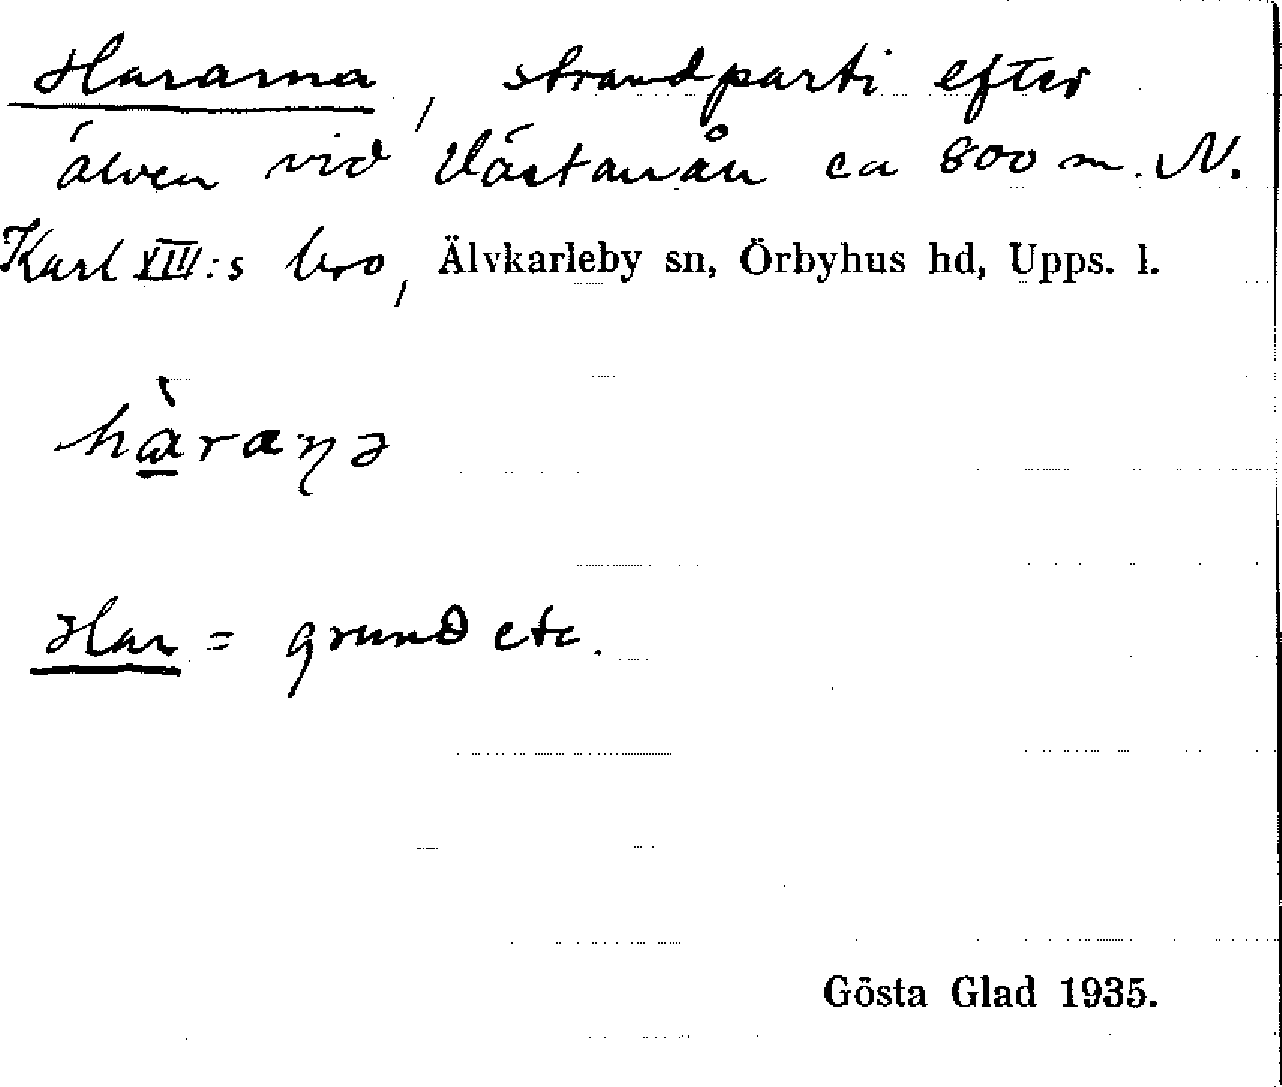 Hararna, strandparti efter
älven vid Västanån ca 800 m. N.
Karl XIII:s bro, Älvkarleby sn, Örbyhus hd, Upps. l.
hàraɳə
Har = grund etc.
Gösta Glad 1935.